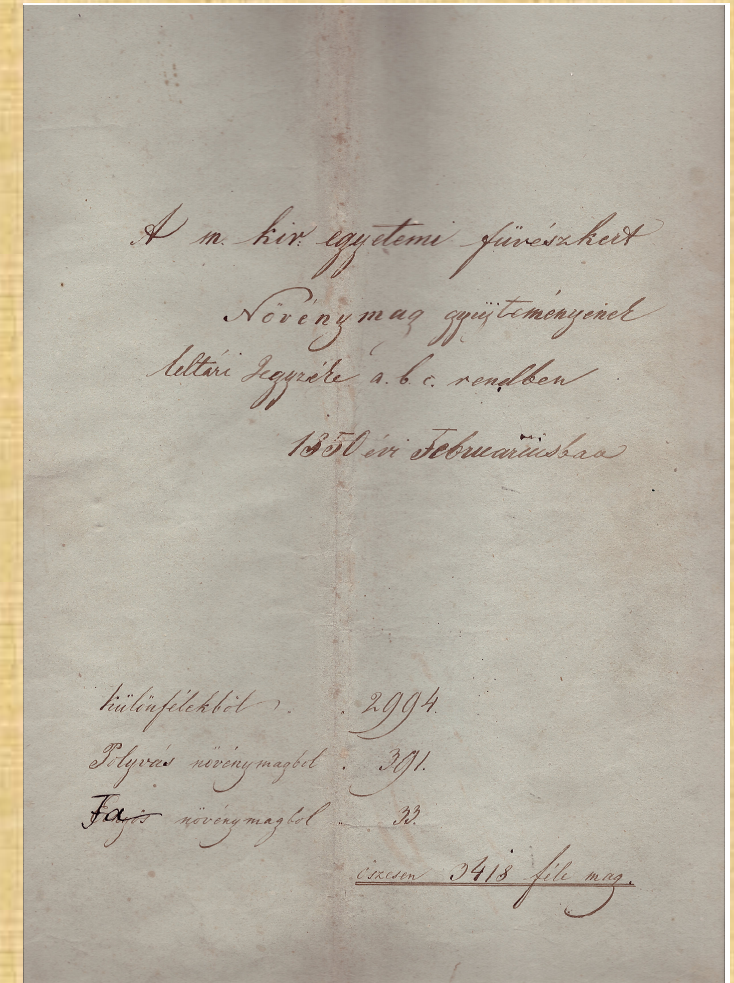 A m. kir. egyetemi füvészkert
Növénymag gyüjteményének
leltári Jegyzéke a. b. c. rendben
1850 évi Februariusban
Különfélékből . . 2994.
Polyvás növénymagból . 391.
növénymagból . 33.
öszesen 3418 féle mag.